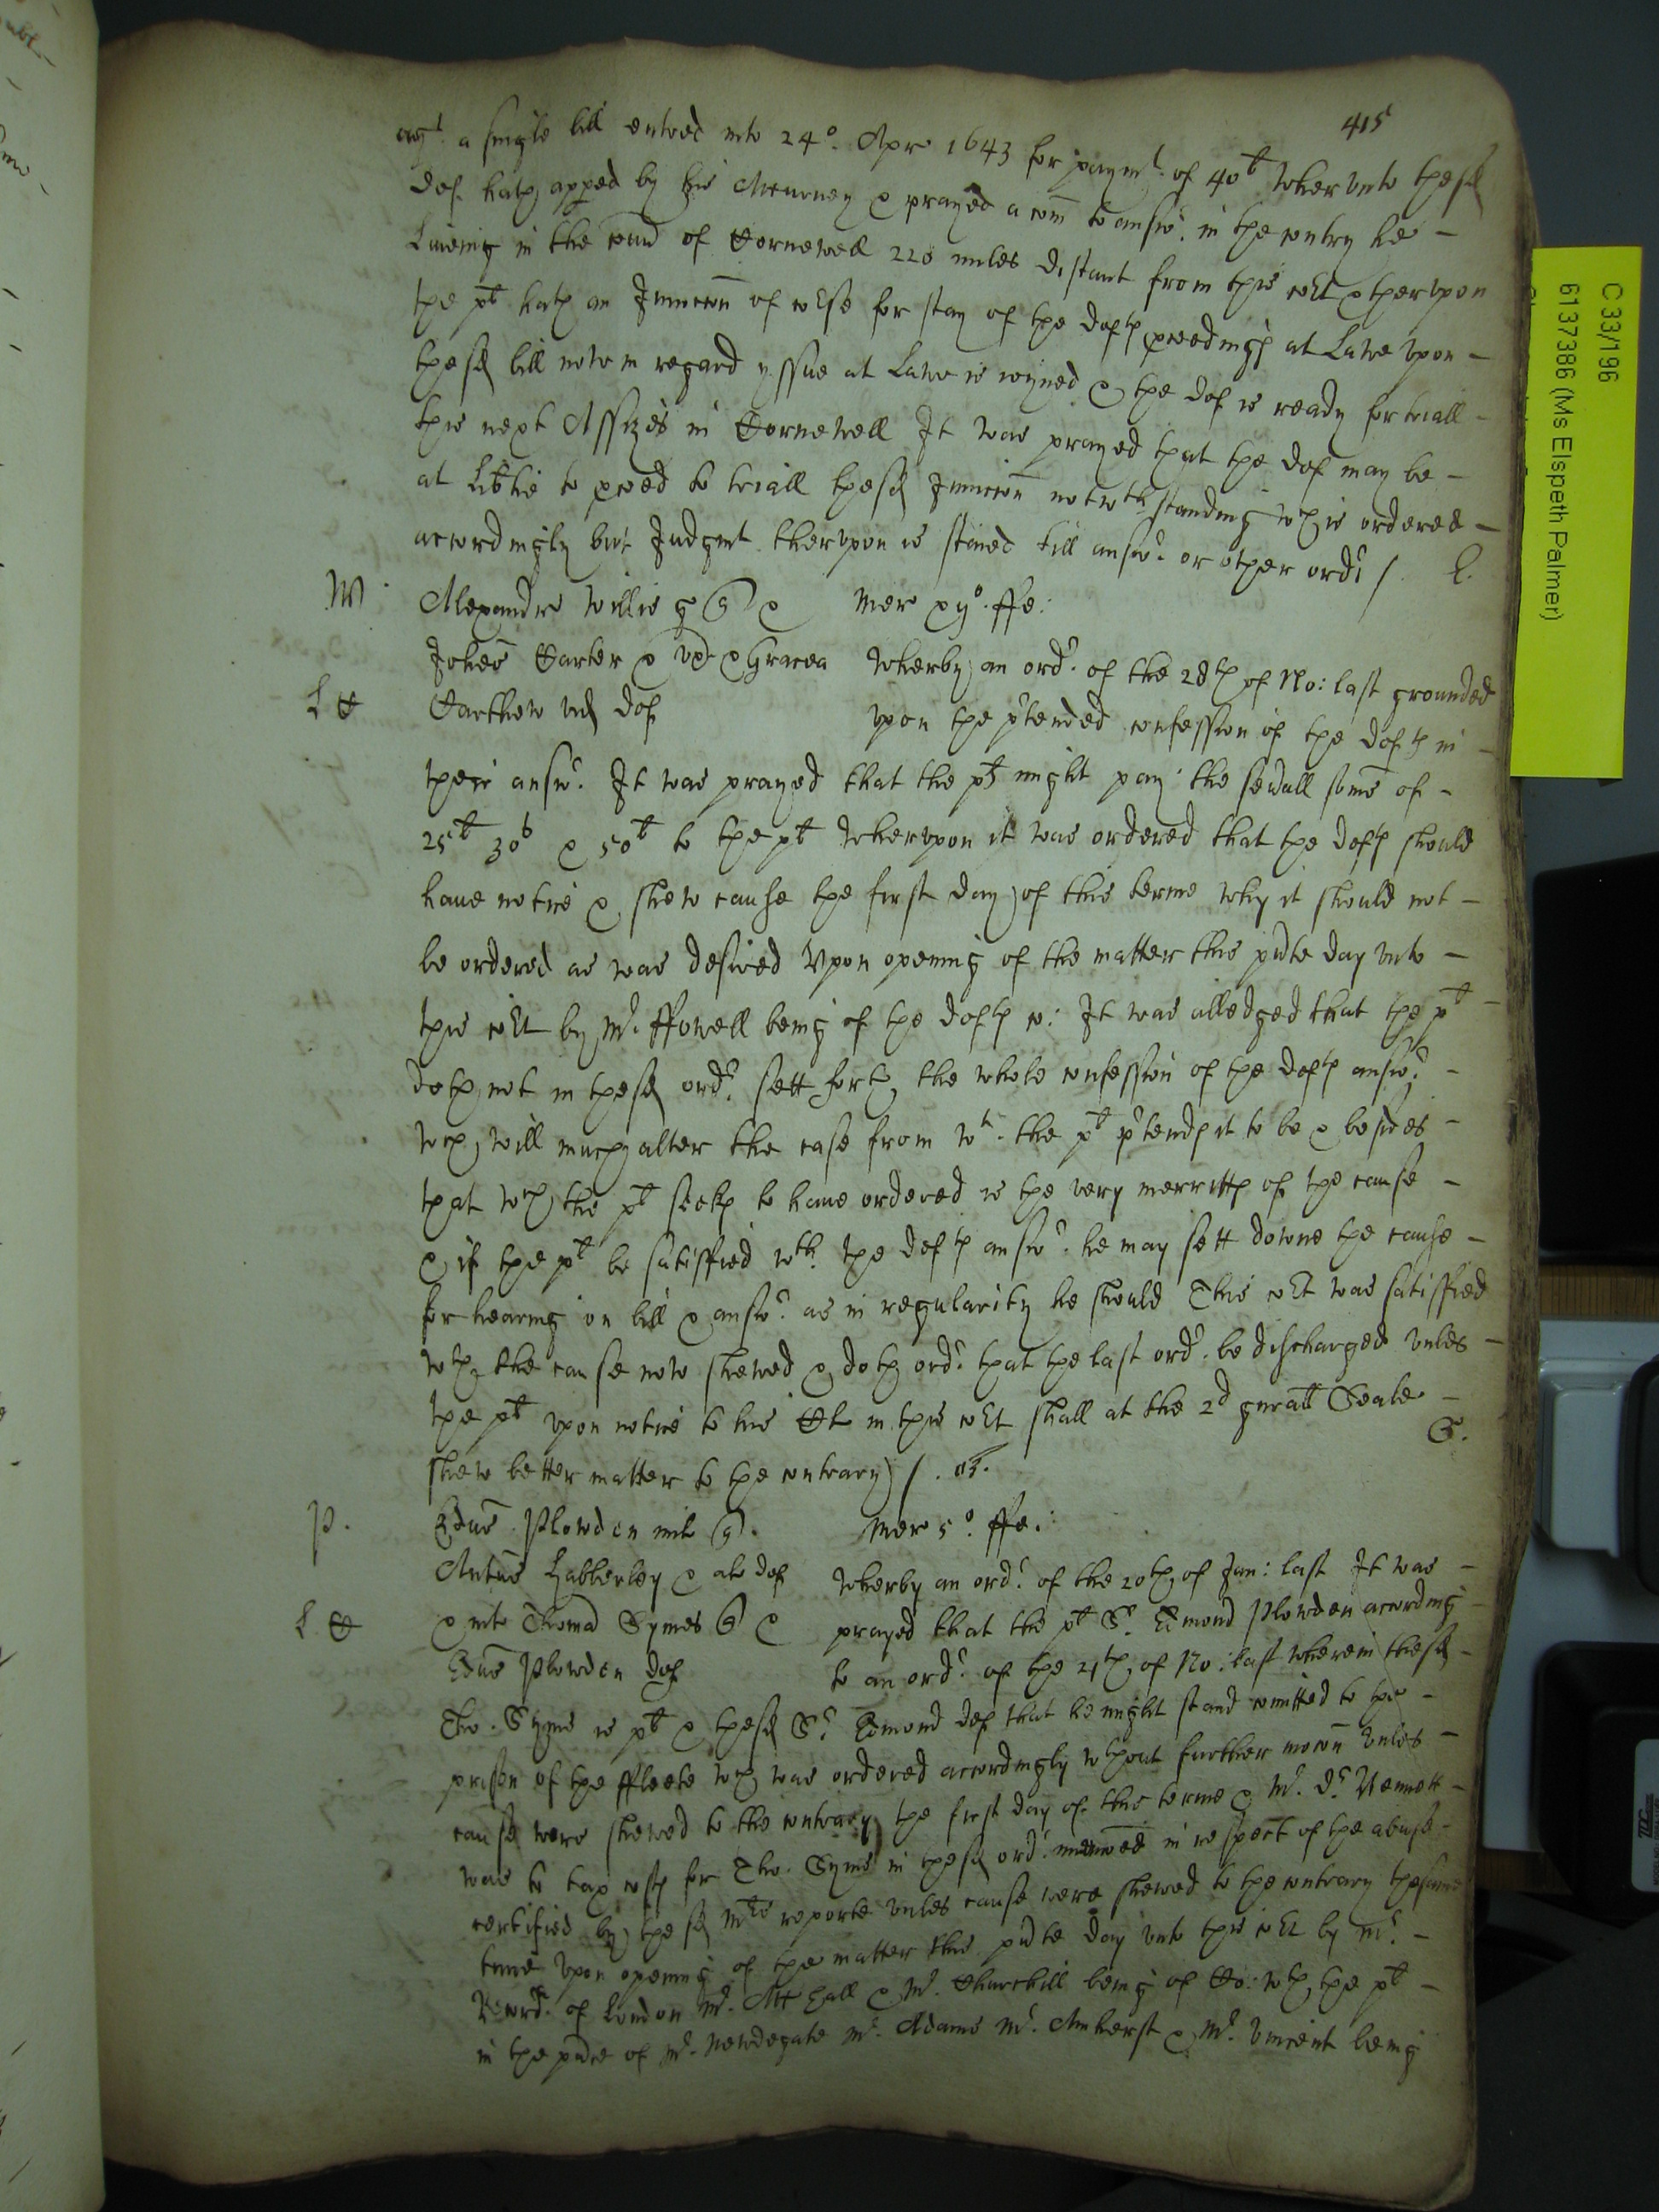 415
agt a single bill entred into 24o. Apr 1643 for paymt. of 40l whervnto the sd
def. hath apped by his Atturney & prayed a com to answ. in the contry he -
liueing in the coun of Cornewell 220 miles distant from this cort & thervpon
the pt hath an Iniuncion of course for stay of the defts proceedings at Lawe vpon -
the sd bill now in regard yssue at Lawe is ioyned & the def is ready for triall -
this next Assizes in Cornewell It was prayed that the def may be -
at libtie to proceed to triall the sd Iniuncion notwthstanding wch is ordered -
accordingly but Iudgmt thervpon is staied till answr or other ordr / L.
W Alexandro Willis g Q & Mer xvo. ffe:
Iohes Carter & vx & Gracea Wherby an ordr. of the 28th of No: last grounded
L C Carthew vid def vpon the prtended confession of the defts in -
their answr. It was prayed that the pt might pay the seuall sums of -
25l 30s & 50l to the pt Whervpon it was ordered that the defts should
haue notice & shew cause the first day of this terme why it should not -
be ordered as was desired Vpon opening of the matter this pnte day vnto -
this cort by Mr. ffowell being of the defts co: It was alledged that the pt -
doth not in the sd ordr. sett forth the whole confession of the defts answr. -
wch will much alter the case from wt. the pt prtends it to be & besides -
that wch the pt seeks to haue ordered is the very merritts of the cause -
& if the pt be satisffied wth. the defts answr. he may sett downe the cause -
for hearing on bill & answr. as in regularity he should This cort was satisffied
wth the cause now shewed & doth ordr. that the last ordr. be discharged vnles -
the pt vpon notice to his Cl in this cort shall at the 2d gnrall Seale -
shew better matter to the contrary / . S.
P. Edus Plowden mil Q. Mer 5o. ffe.
Antus Habberley & al def Wherby an ordr. of the 20th of Jan: last It was -
L. C & inter Thomā Symes Q & prayed that the pt Sr. Edmond Plowden according
Edus Plowden def to an ordr. of the 21th of No: last wherein the sd -
Tho. Syms is pt & the sd Sr. Edmond def that he might stand comitted to the -
prison of the ffleete wch was ordered accordingly wthout further mocon vnles -
cause were shewed to the contrary the first day of this terme & Mr. Dr. Bennett -
was to tax costs for Tho. Syms in the sd ordr. mencoed in respect of the abuse -
certified by the sd Mrs reporte vnles cause were shewed to the contrary the same
time Vpon opening of the matter this pnte day vnto this cort by Mr. -
Recordr. of London Mr. Att Hall & Mr. Churchill being of Co: wth the pt -
in the pnce of Mr. Newdegate Mr. Adams Mr. Amherst & Mr. Vincent being
C 33/196
6137386 (Ms Elspeth Palmer)